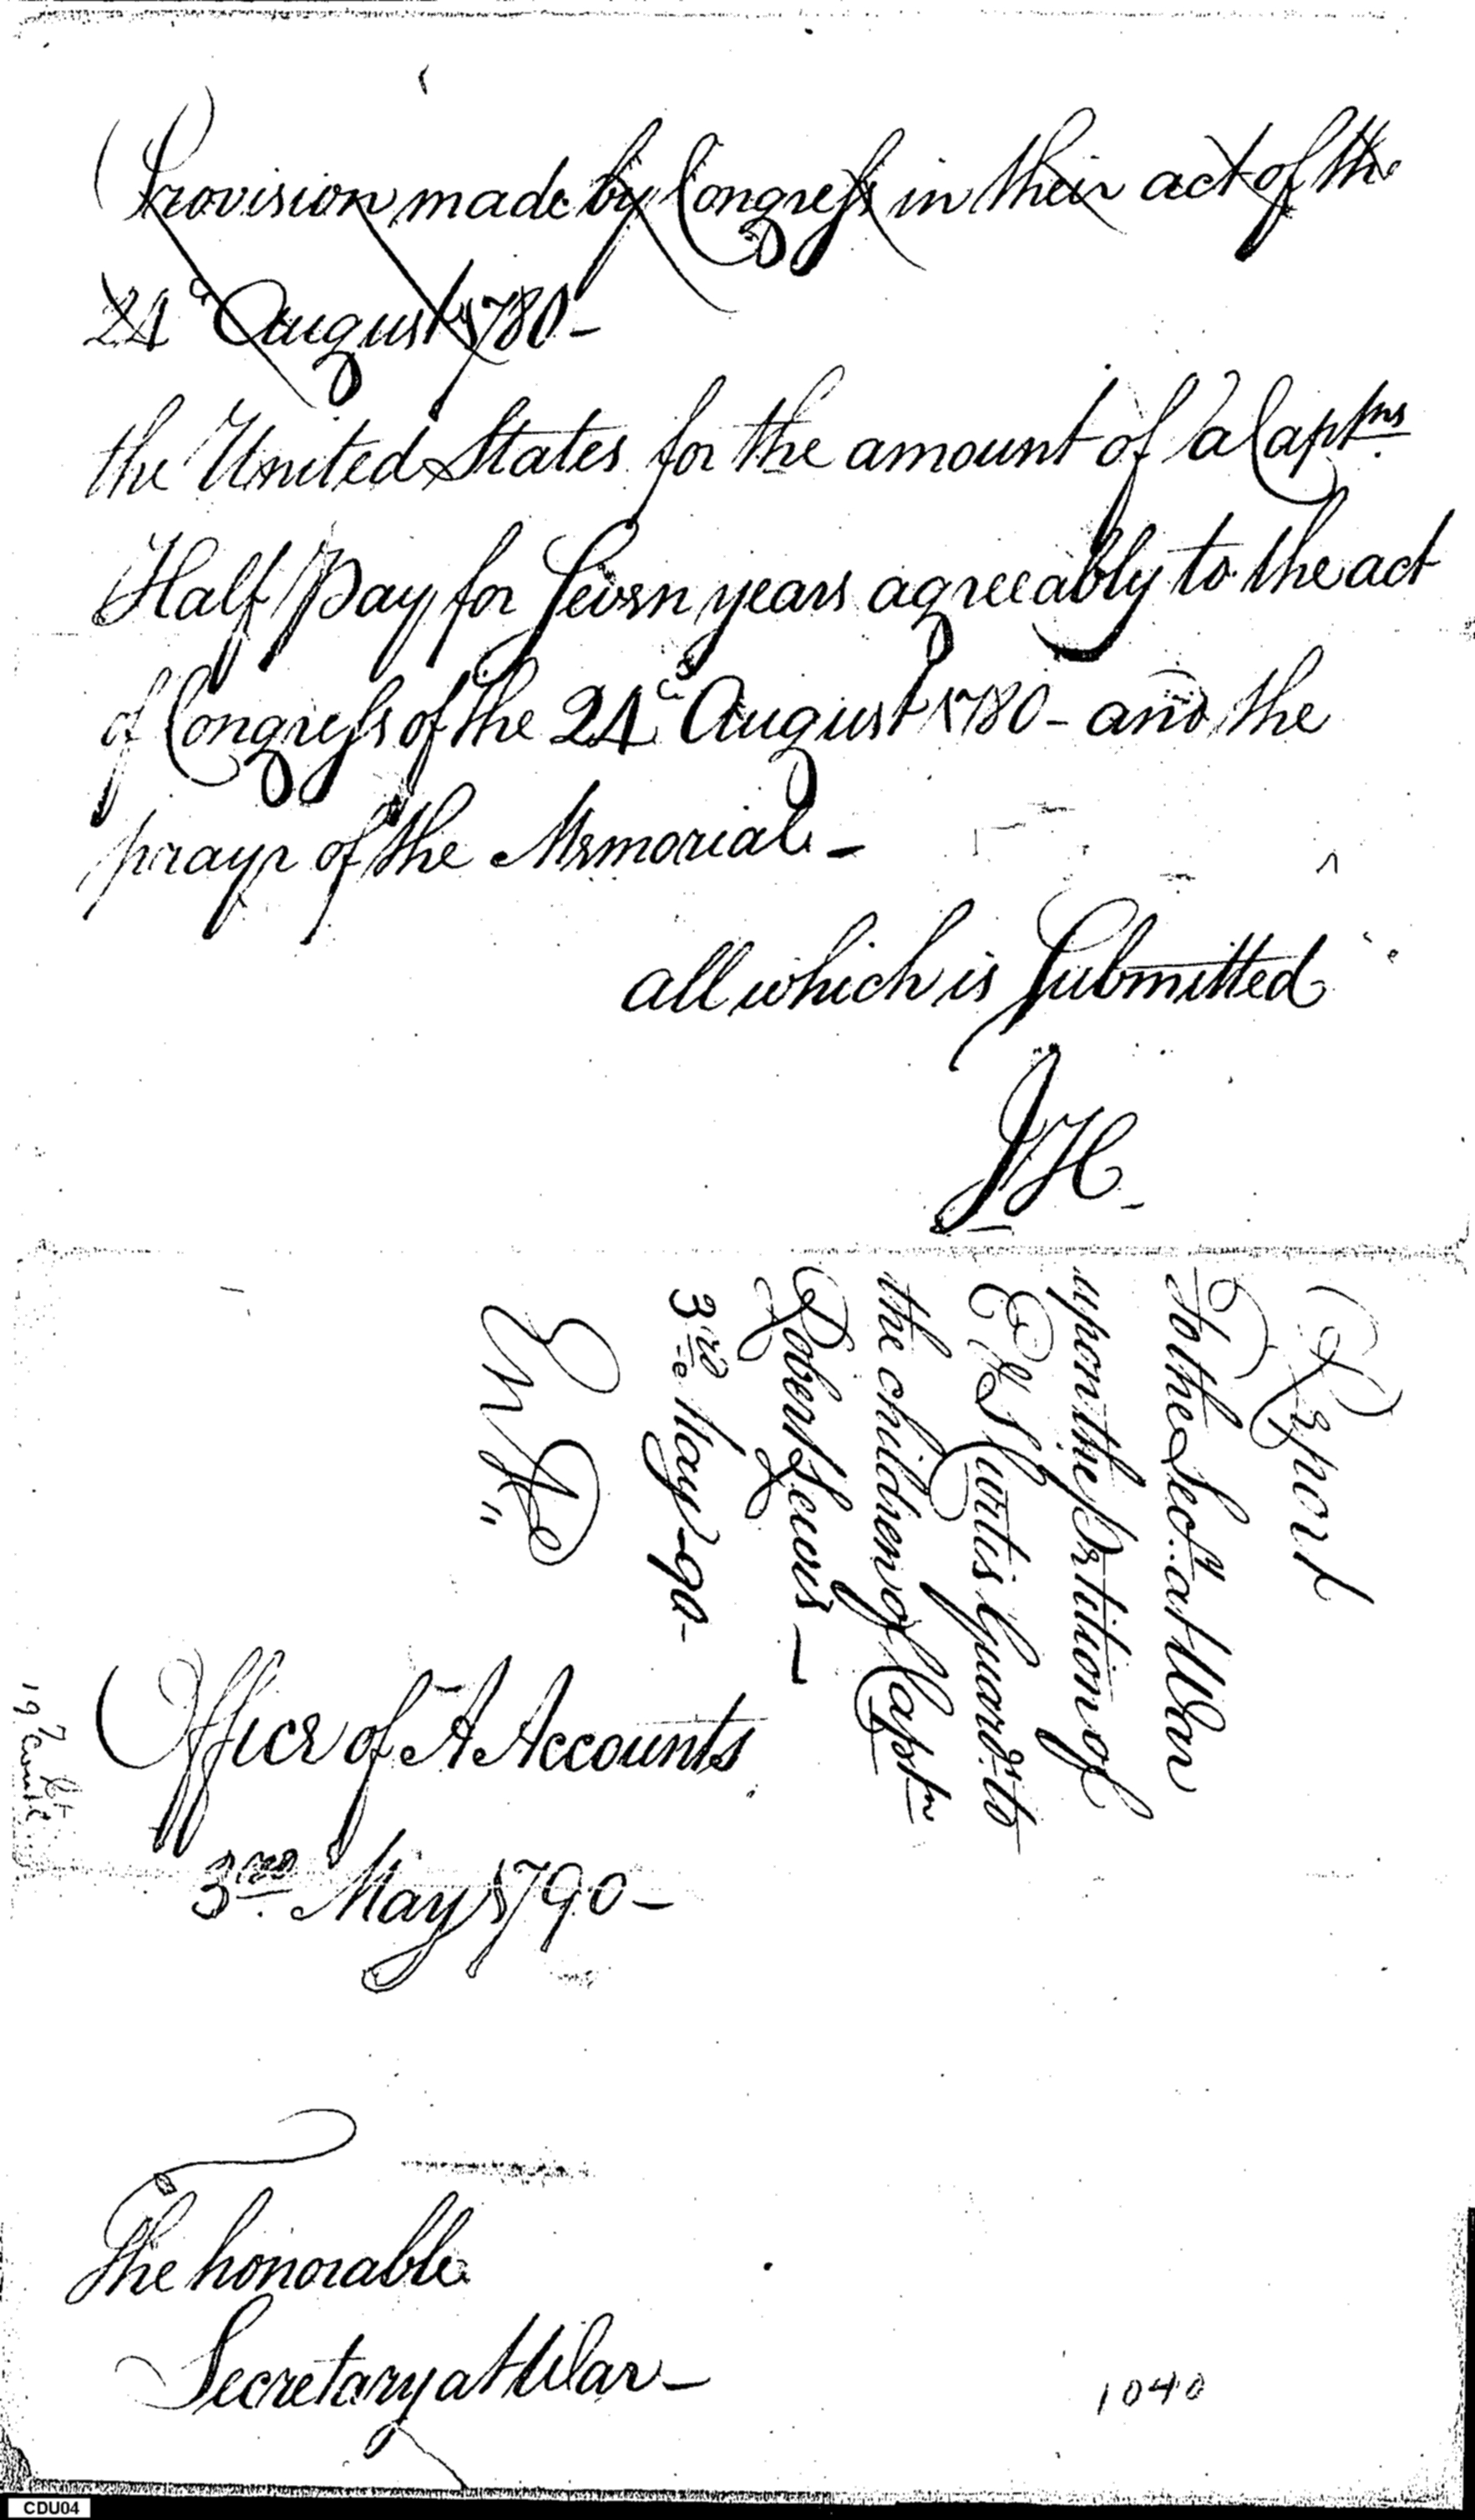 Provision made by Congress in their act of the
24th August 1780 -
the United States for the amount of a Captns
Half Pay for Seven years agreeably to the act
of Congress of the 24th August 1780 - and the
prayr of the Memorial -
all which is Submitted
JH -
Report
To the Secty at War
upon the Petition of
the children of Captn
Robert Lewis -
3rd May 90 -
Office of A Accounts
3rd May 1790 -
The honorable
Secretary at War -
1040
CDU04